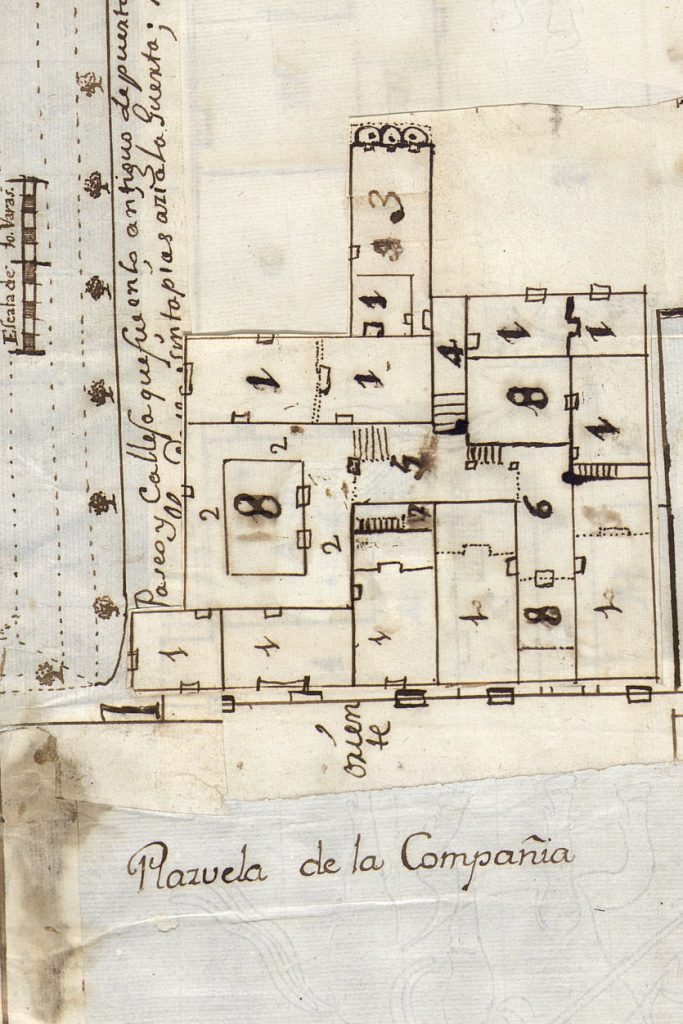 Escala de 10. Varas.
Paseo y Callesa que fue en lo antiguo de puerta
tapias azia la Guerta;
3
1
4
1
1
1
1
8
1
2
2
8
2
5
6
8
12
1
1
1
1
1
1
orien
te
Plazuela de la Compañia